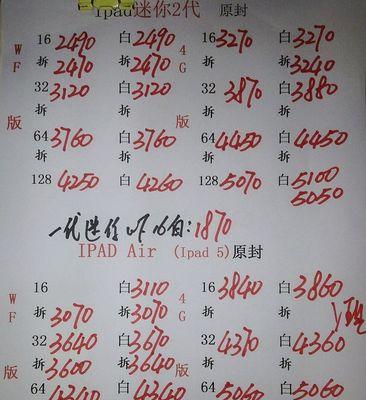 Ipad迷你2代 原封
W 16 2490 白2490 4 16 3270 白3270
F 拆2470 拆2470 G 拆 拆3240
32 3120 白3120 32 3870 白3880
版 拆 拆 版 拆 拆
64 3760 白3760 64 4450 白4450
拆 拆 拆 拆
128 4250 白4260 128 5070 白5100
5050
一代迷你 WF 16白:1870
IPAD Air (Ipad 5)原封
W 16 白3110 4 16 3840 白3860
F 拆3070 拆3070 G 拆 拆
32 3640 白3670 32 4370 白4360
版 拆3600 拆3640 版 拆 拆
64 4240 白4340 64 5060 白5060